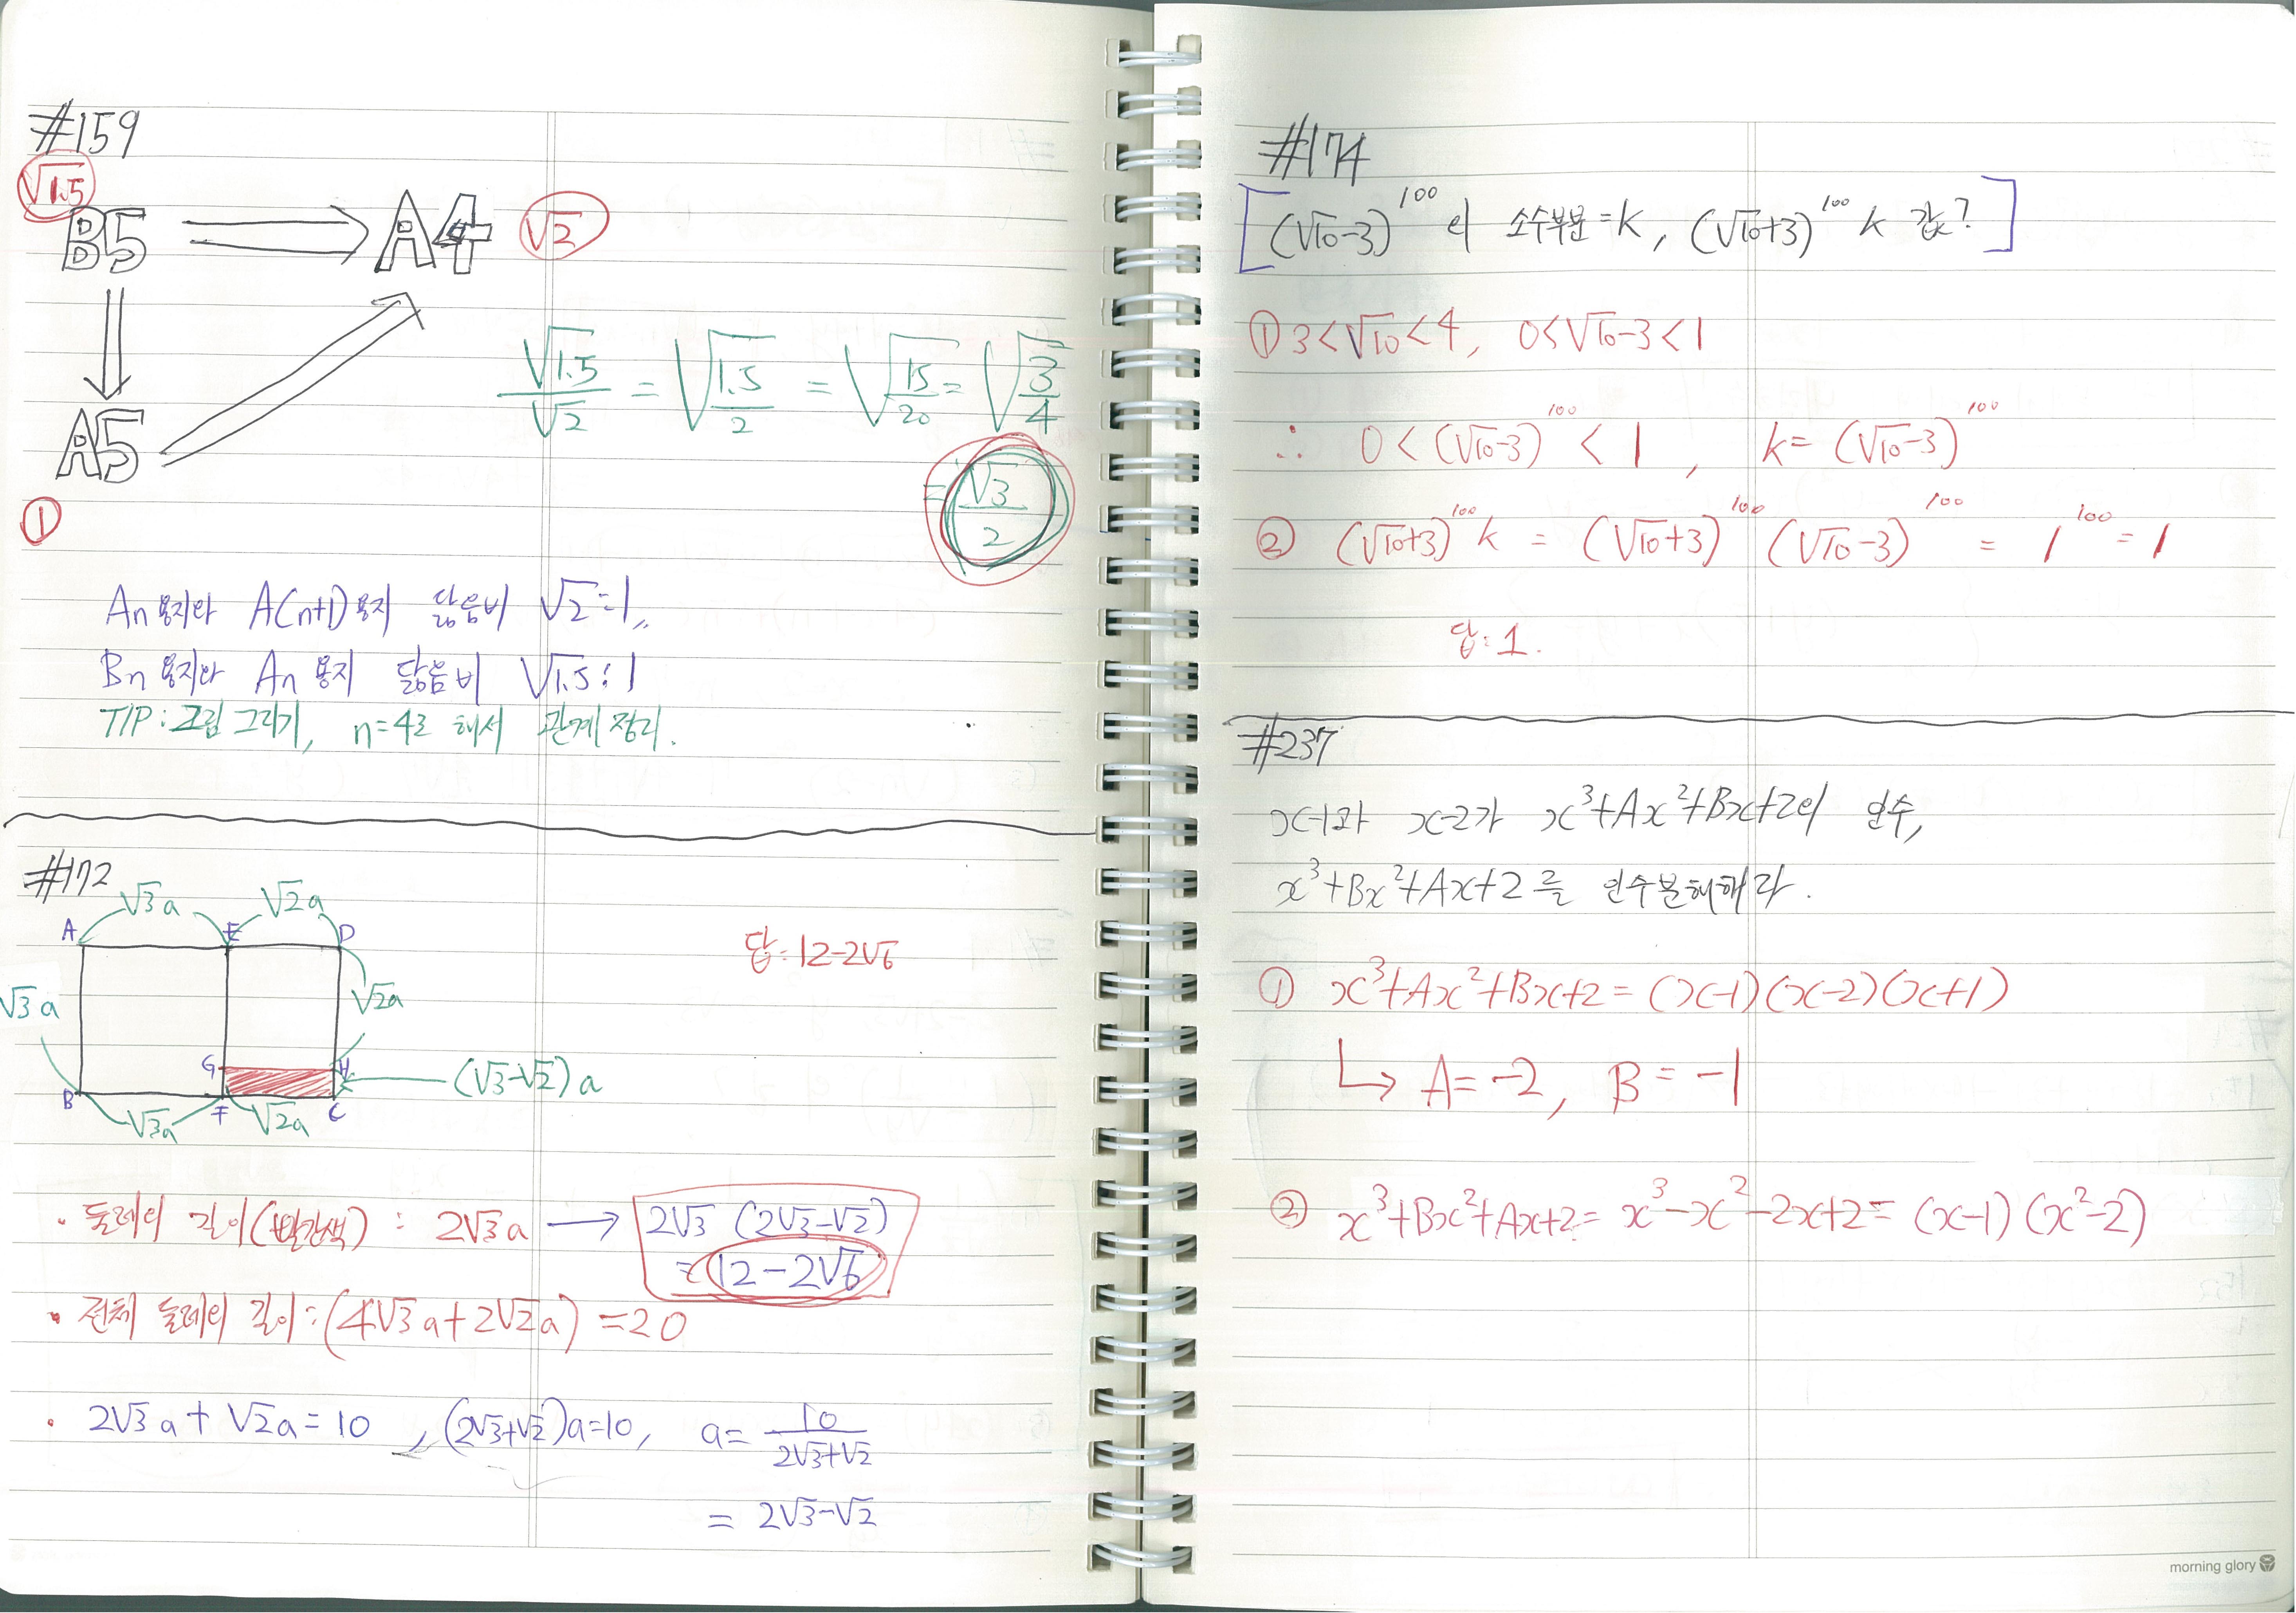 #159
√1.5
B5 ⇒ A4 √2
A5
√1.5/√2 = √(1.5/2) = √(15/20) = √(3/4)
= √3/2
①
An용지와 A(n+1)용지 닮음비 √2:1,,
Bn 용지와 An 용지 닮음비 √1.5:1
TIP: 그림 그리기, n=4로 해서 관계 정리.
#172
√3a √2a
A E D
√3a √2a
G H
(√3-√2)a
B F C
√3a √2a
답: 12-2√6
· 둘레의 길이(빨간색) : 2√3a → 2√3 (2√3-√2)
= 12-2√6
· 전체 둘레의 길이: (4√3a+2√2a) = 20
· 2√3a+√2a=10, (2√3+√2)a=10, a= 10/(2√3+√2)
= 2√3-√2
#174
[(√10-3)¹⁰⁰의 소수부분=k, (√10+3)¹⁰⁰ k 값?]
① 3<√10<4, 0<√10-3<1
∴ 0<(√10-3)¹⁰⁰<1, k=(√10-3)¹⁰⁰
② (√10+3)¹⁰⁰k = (√10+3)¹⁰⁰ (√10-3)¹⁰⁰ = 1¹⁰⁰ = 1
답: 1.
#237
x-1과 x-2가 x³+Ax²+Bx+2의 인수,
x³+Bx²+Ax+2를 인수분해해라.
① x³+Ax²+Bx+2=(x-1)(x-2)(x+1)
↳ A=-2, B=-1
② x³+Bx²+Ax+2=x³-x²-2x+2=(x-1)(x²-2)
morning glory